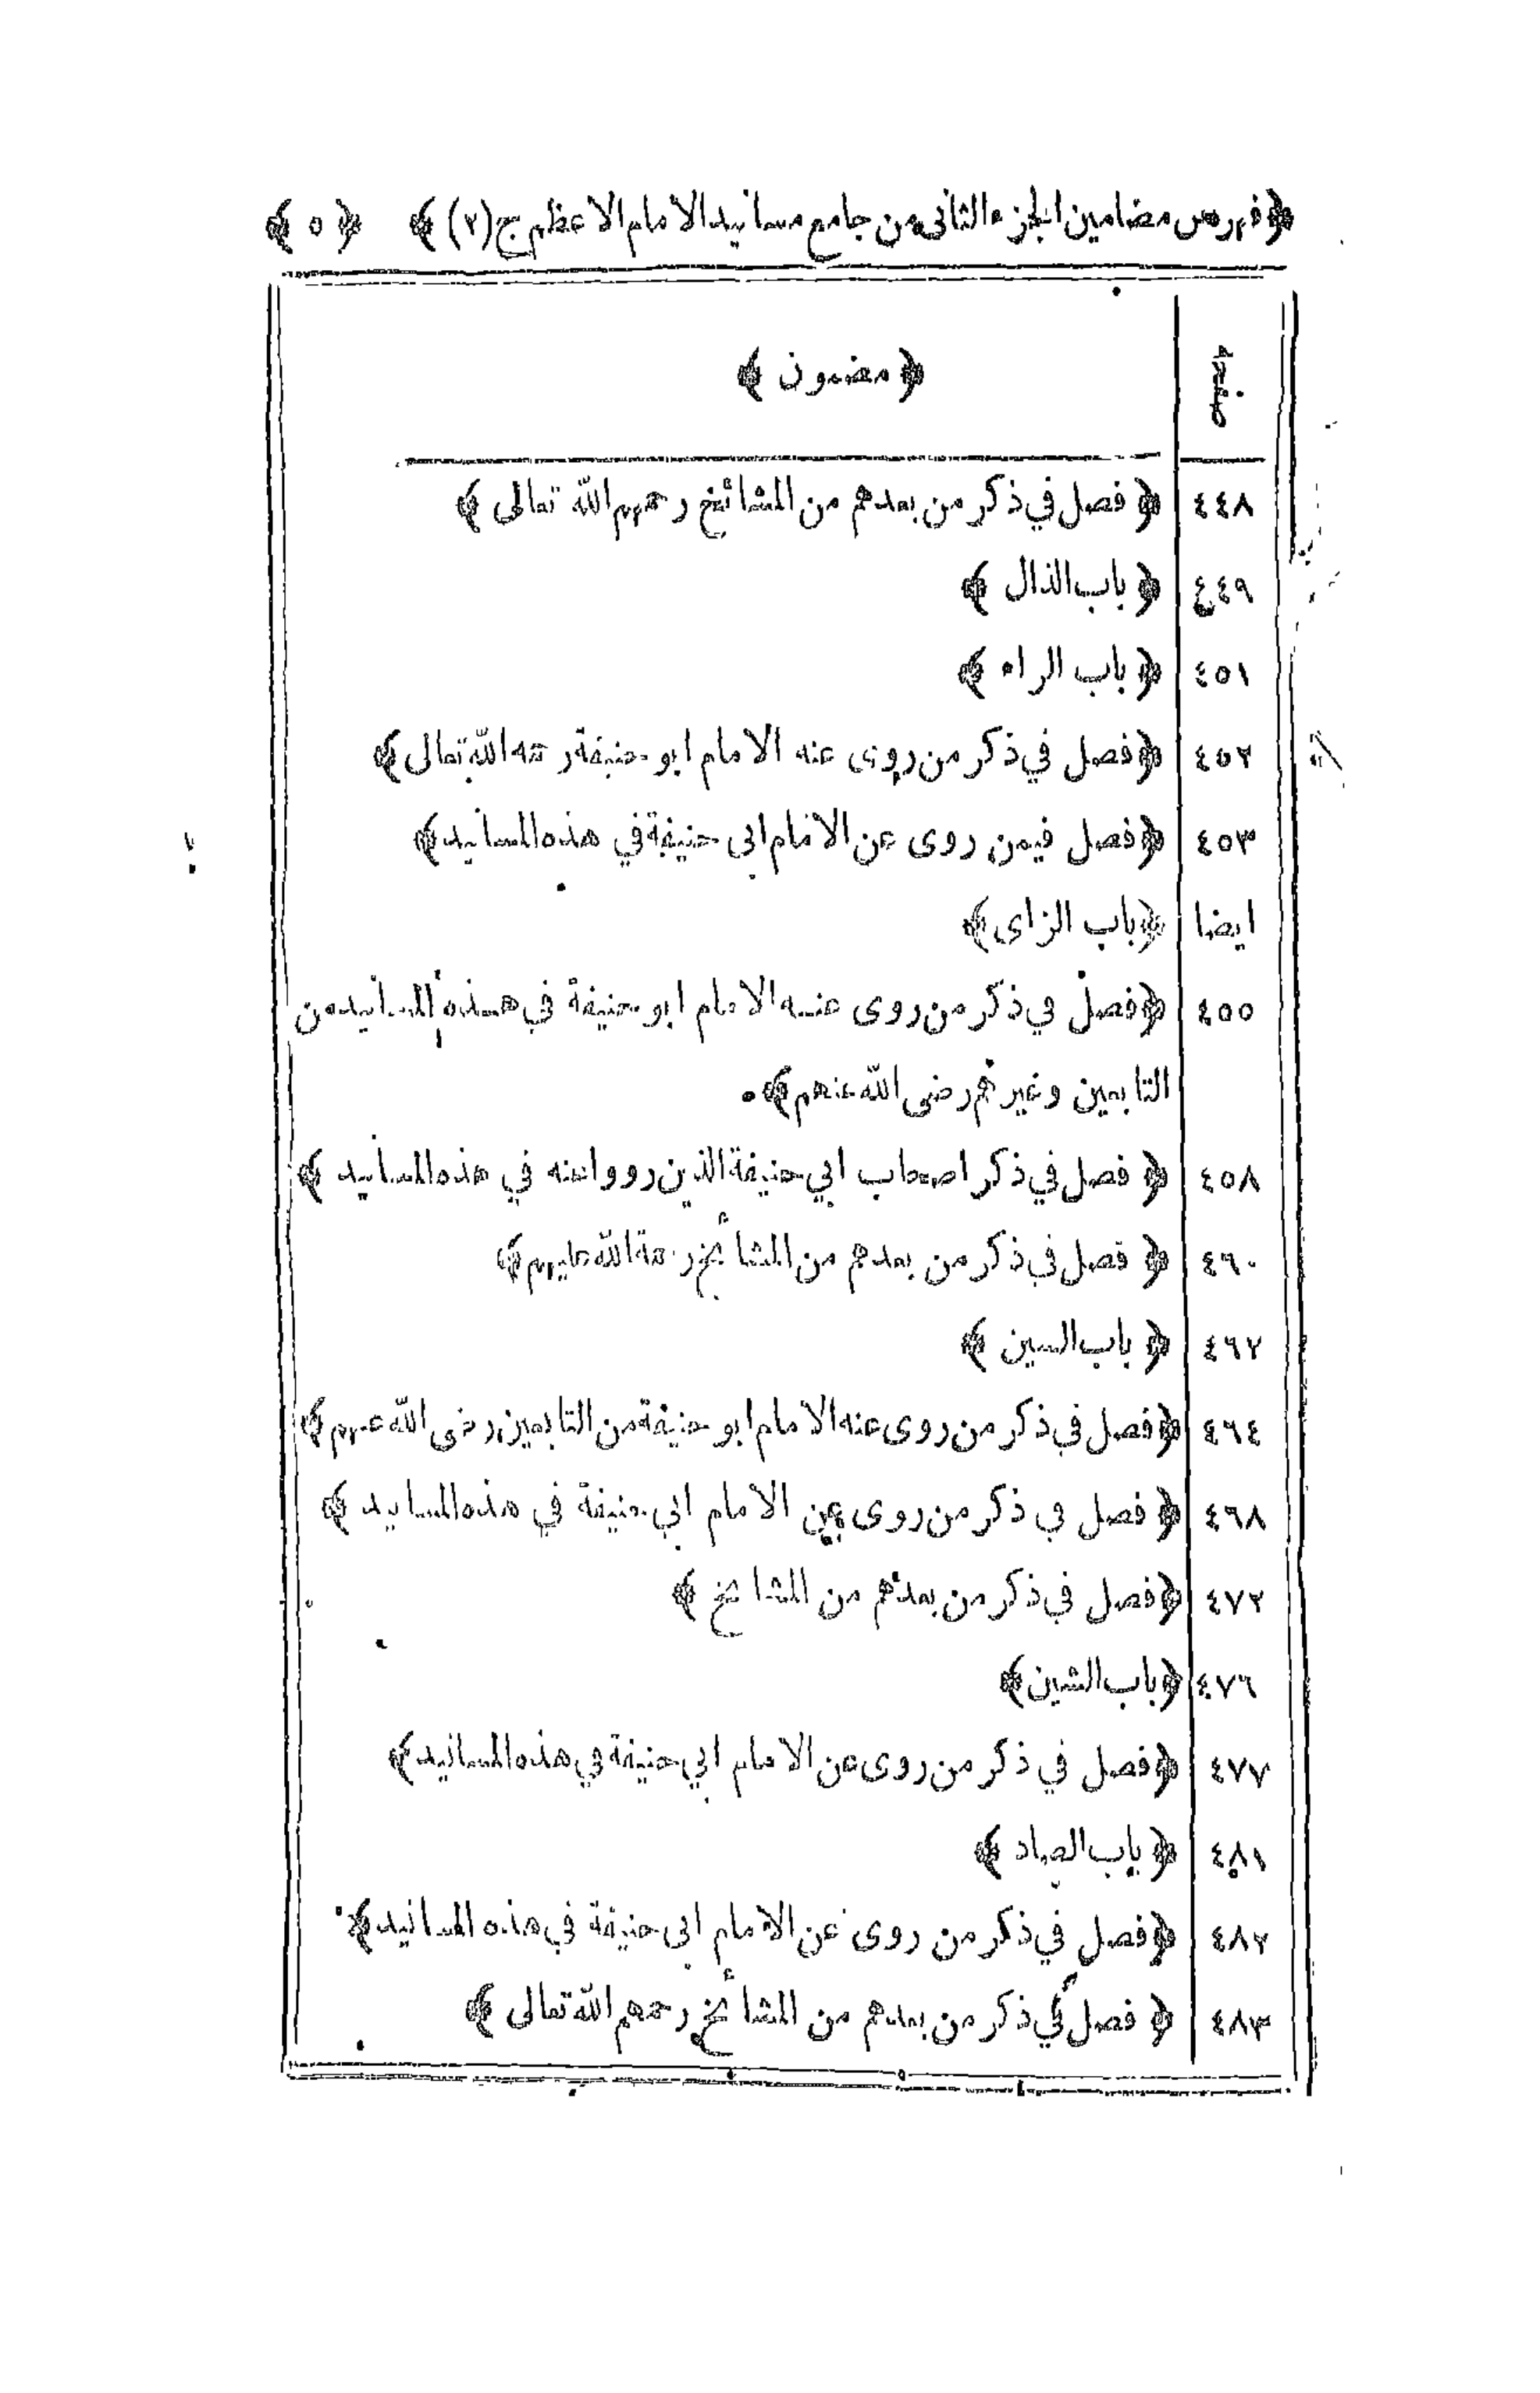 ﴿فهرس مضامين الجزء الثانى من جامع مسانيد الامام الاعظم ج(٢)﴾ ﴿٥﴾
صفحه ﴿مضمون﴾
٤٤٨ ﴿فصل في ذكر من بعدهم من المشائخ رحمهم الله تعالى﴾
٤٤٩ ﴿باب الذال﴾
٤٥١ ﴿باب الراء﴾
٤٥٢ ﴿فصل في ذكر من روى عنه الامام ابو حنيفة رحمه الله تعالى﴾
٤٥٣ ﴿فصل فيمن روى عن الامام ابى حنيفة في هذه المسانيد﴾
ايضا ﴿باب الزاى﴾
٤٥٥ ﴿فصل في ذكر من روى عنه الامام ابو حنيفة في هذه المسانيد من
التابعين وغيرهم رضى الله عنهم﴾
٤٥٨ ﴿فصل في ذكر اصحاب ابي حنيفة الذين رووا عنه في هذه المسانيد﴾
٤٦٠ ﴿فصل في ذكر من بعدهم من المشائخ رحمة الله عليهم﴾
٤٦٢ ﴿باب السين﴾
٤٦٤ ﴿فصل في ذكر من روى عنه الامام ابو حنيفة من التابعين رضى الله عنهم﴾
٤٦٨ ﴿فصل في ذكر من روى عن الامام ابي حنيفة في هذه المسانيد﴾
٤٧٢ ﴿فصل في ذكر من بعدهم من المشائخ﴾
٤٧٦ ﴿باب الشين﴾
٤٧٧ ﴿فصل في ذكر من روى عن الامام ابي حنيفة في هذه المسانيد﴾
٤٨١ ﴿باب الصاد﴾
٤٨٢ ﴿فصل في ذكر من روى عن الامام ابى حنيفة في هذه المسانيد﴾
٤٨٣ ﴿فصل في ذكر من بعدهم من المشائخ رحمهم الله تعالى﴾